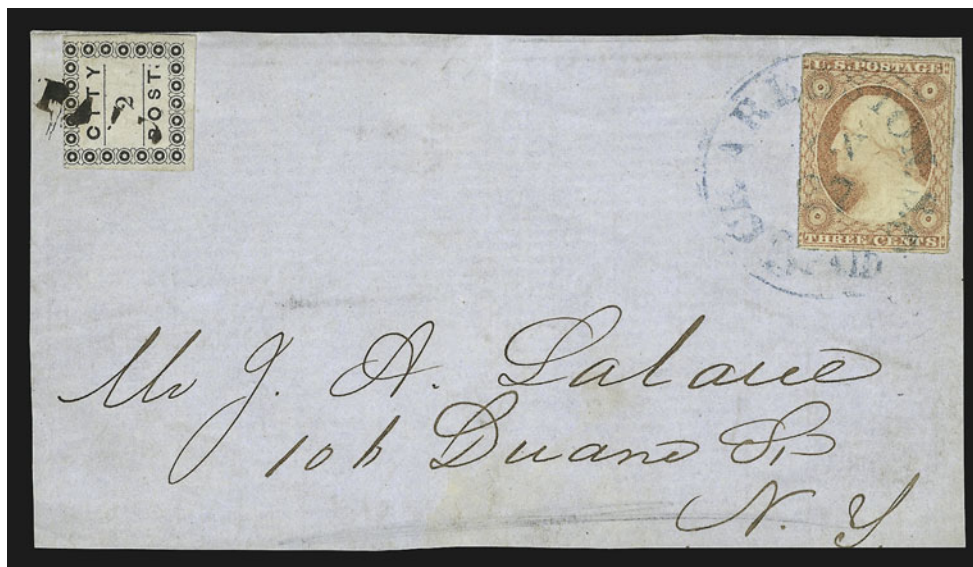 CITY
2
POST
U.S. POSTAGE
THREE CENTS
PAID
Mr J. A. Lalane
106 Duane St
N. Y.